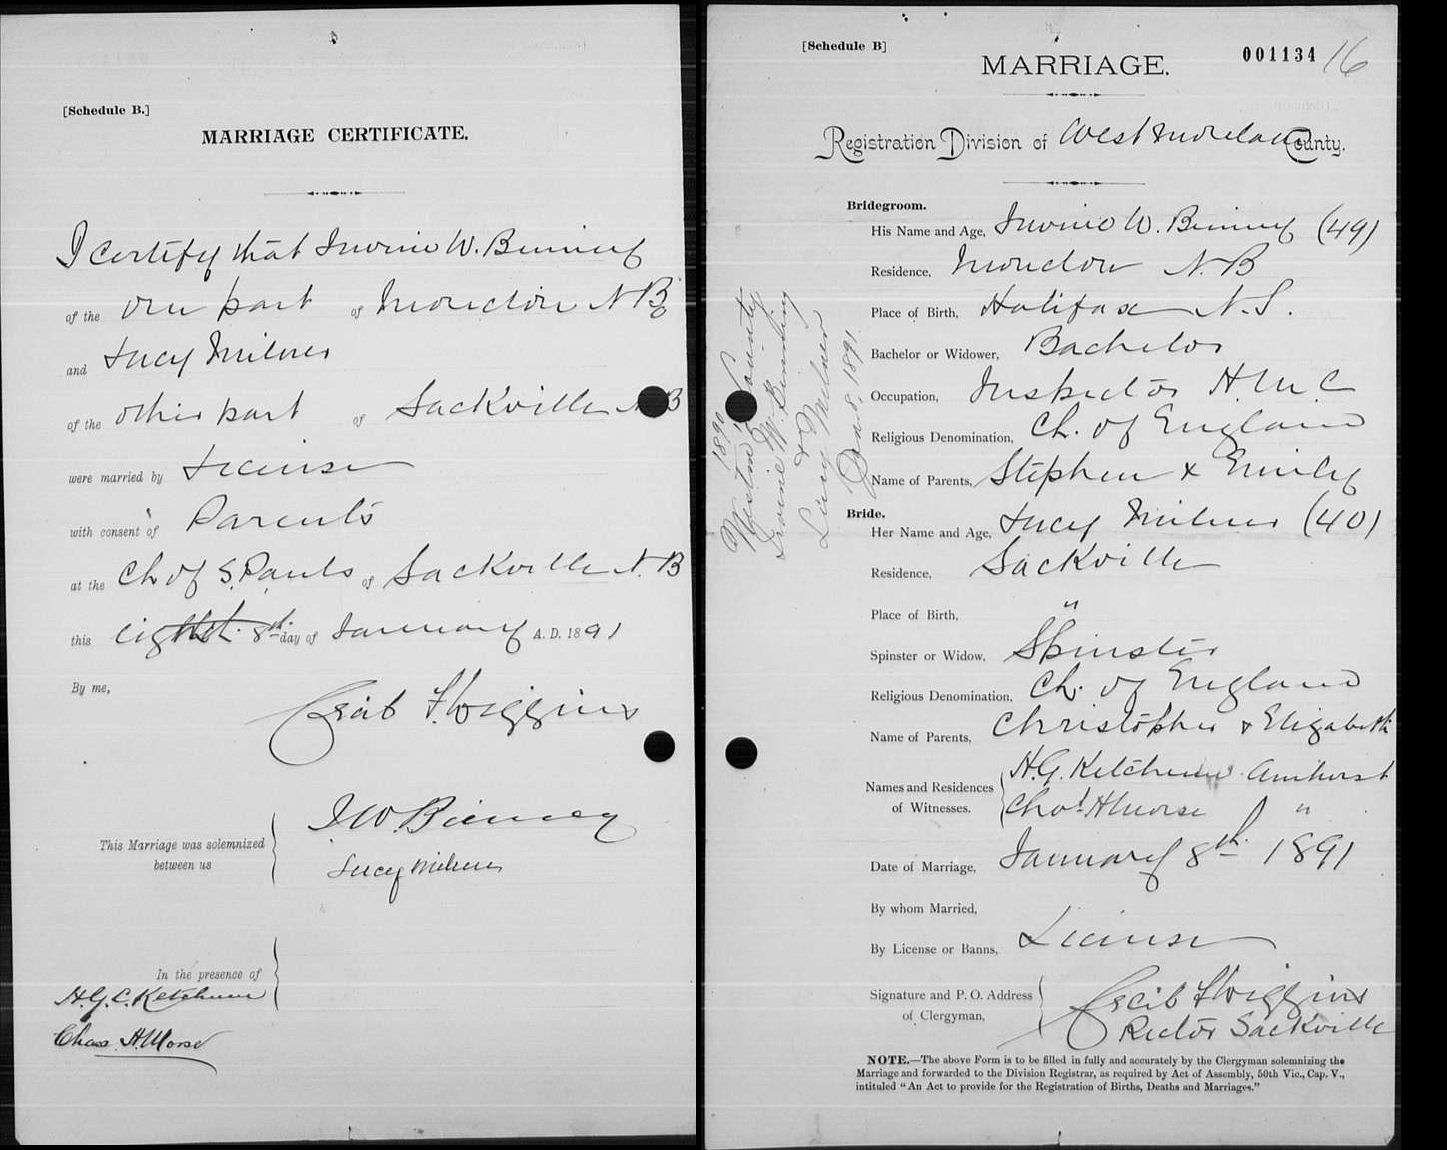 [Schedule B.]
MARRIAGE CERTIFICATE.
I certify that Irvine W. Binney
of the one part of Moncton N B
and Lucy Milner
of the other part of Sackville N B
were married by License
with consent of Parents
at the Ch of S. Pauls of Sackville N. B
this 8th day of January A. D. 1891
By me,
Cecil F. Wiggins
I W. Binney
This Marriage was solemnized
between us
Lucy Milner
In the presence of
H. G. C. Ketchum
Chas. H. Morse
[Schedule B]
001134 16
MARRIAGE.
Registration Division of Westmorland County.
Bridegroom.
His Name and Age, Irvine W. Binney (49)
Residence, Moncton N. B
Place of Birth, Halifax N. S.
Bachelor or Widower, Bachelor
Occupation, Inspector H. M. C
Religious Denomination, Ch. of England
Name of Parents, Stephen & Emily
Bride.
Her Name and Age, Lucy Milner (40)
Residence, Sackville
Place of Birth, "
Spinster or Widow, Spinster
Religious Denomination, Ch. of England
Name of Parents, Christopher & Elizabeth
Names and Residences
of Witnesses.
H. G. Ketchum Amherst
Chas. H Morse "
Date of Marriage, January 8th 1891
By whom Married,
By License or Banns, License
Signature and P. O. Address
of Clergyman,
Cecil F Wiggins
Rector Sackville
NOTE.—The above Form is to be filled in fully and accurately by the Clergyman solemnizing the
Marriage and forwarded to the Division Registrar, as required by Act of Assembly, 50th Vic., Cap. V.,
intituled "An Act to provide for the Registration of Births, Deaths and Marriages."
1890
County
W. Binney
&
Lucy Milner
Jan 8, 1891